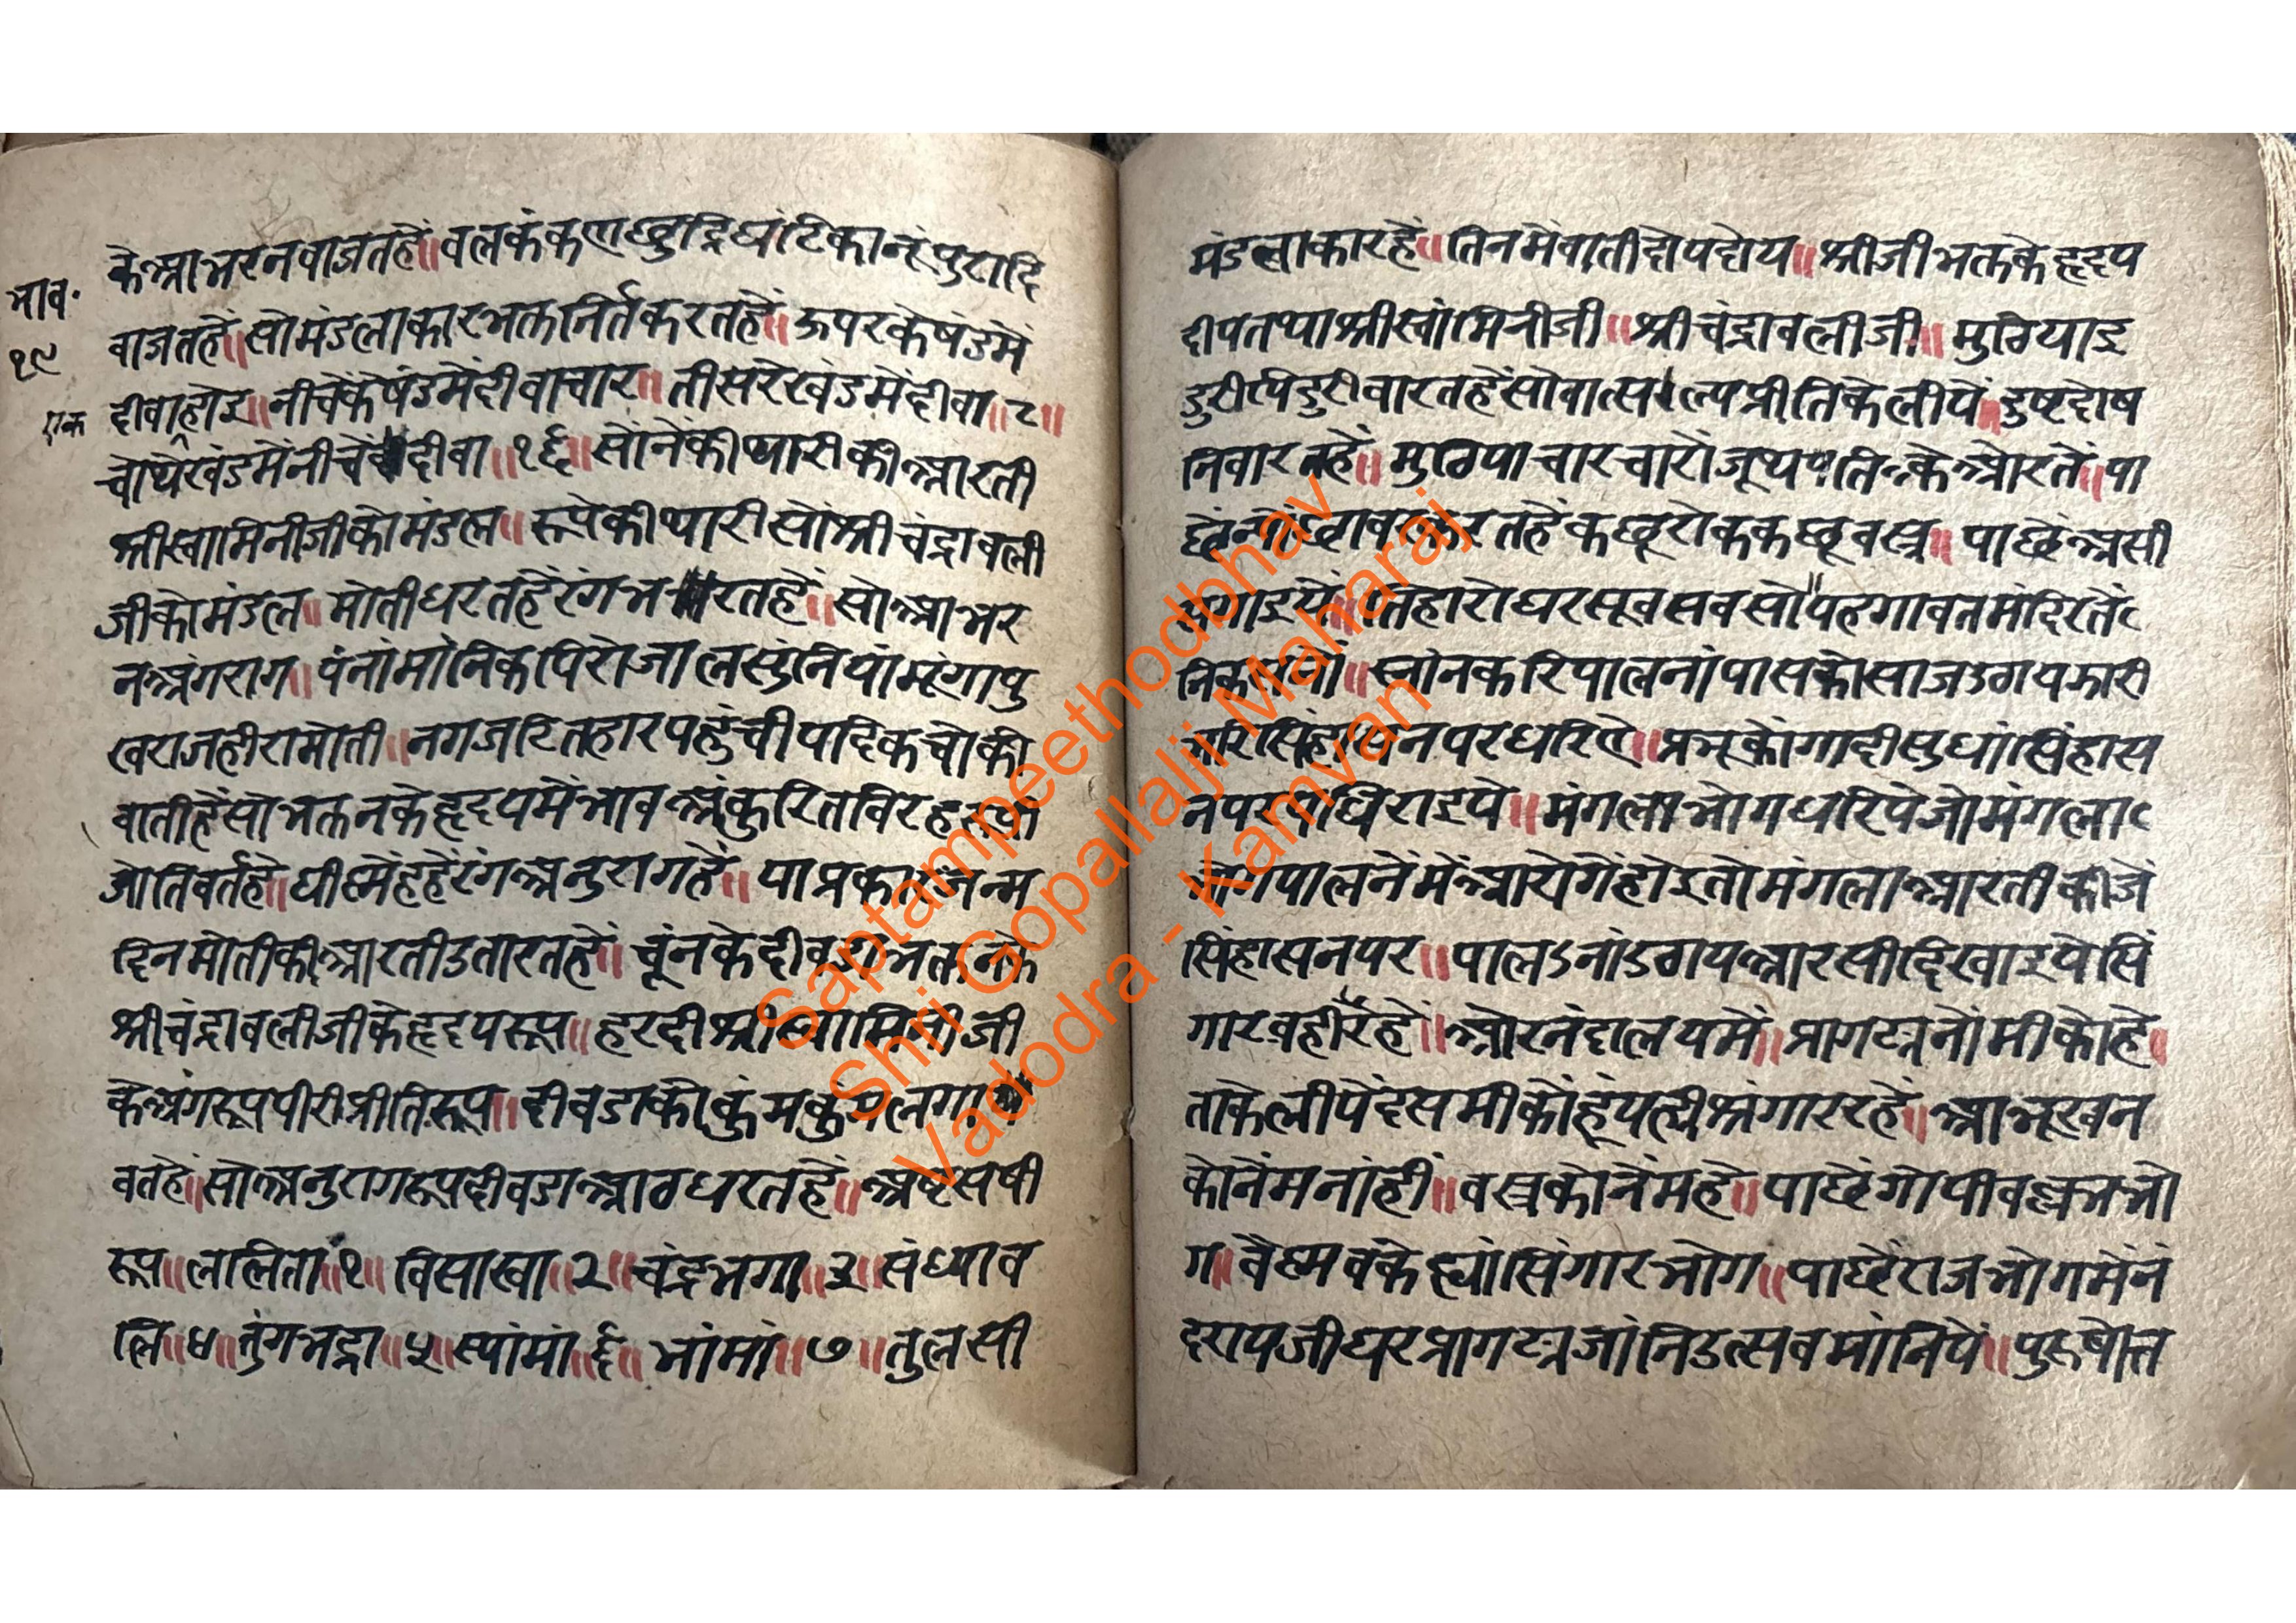 भाव॰
१९
एक
के आभरन वाजत हें॥ वलकंकण छुद्रिघंटिका नूंपुरादि
वाजत हें॥ सो मंडलाकार भक्त निर्त करत हें॥ ऊपर के षंड में
दीवा हाइ॥ नीचे के षंड में दीवा चार॥ तीसरे खंड में दीवा॥८॥
चोथे खंड में नीचे दीवा॥१६॥ सोंने की थारी की आरती
श्रीस्वामिनीजी को मंडल॥ रूपे की थारी सो श्रीचंद्रावली
जी को मंडल॥ मोती धरत हें रंग भरत हें॥ सो आभर
न अंगराग॥ पंनां मांनिक पिरोजा लसुंनियां मूंगा पु
खराज हीरा मोती॥ नग जटित हार पहुंची पदिक चोकी
वाती हें सो भक्तन के हृदय में भाव अंकुरित विरह
जोति वर्तहे॥ घी स्नेंह हें रंग अनुराग हें॥ या प्रकार जन्म
दिन मोती की आरती उतारत हें॥ चूंन के दीवडा भक्तन के
श्रीचंद्रावलीजी के हृदय रूप॥ हरदी श्रीस्वामिनीजी
के अंग रूप पीरी प्रीति रूप॥ दीवडा को कुंमकुंम लगा
वत हें॥ सो अनुराग रूप दीवडा आठ धरत हें॥ अष्ट सषी
रूप॥ ललिता॥१॥ विसाखा॥२॥ चंद्रभगा॥३॥ संध्याव
लि॥४॥ तुंगभद्रा॥५॥ स्यांमां॥६॥ भांमां॥७॥ तुलसी
मंडलाकार हें॥ तिन में वाती दोय दोय॥ श्रीजी भक्त के हृदय
दीप तथा श्रीस्वांमिनीजी॥ श्रीचंद्रावलीजी॥ मुठिया इ
डुरी पिंडुरी वारत हें सो वात्सल्य प्रीति के लीयें॥ दुष्ट दोष
निवारत हें॥ मुठिया चार चारों जूथपति के ओरतें॥ पा
छें न्योंछावर करत हें कछू रोक कछू वस्त्र॥ पाछें असी
तिहारो घर सूवस वसो॥ यह गावत मंदिर तें
स्नांन करि पालनां पास को साज उठाय झारी
भरि सिंहासन पर धरिए॥ प्रभू कों गादी सुधां सिंहास
न पर पधिराइये॥ मंगला भोग धरिये जो मंगला
भोग पालनें में आरोगें होइ तो मंगला आरती कीजें
सिंहासन पर॥ पालऽनां उठाय आरसी दिखाइये सिं
गार वही रहें॥ ओर नंदालय में॥ प्रागट्य नोंमी को हे॥
ताके लीयें दसमी कों हूं यही श्रंगार रहें॥ आभूखन
को नेंम नांहीं॥ वस्त्र को नेंम हे॥ पाछें गोपीवल्लभ भो
ग॥ वैष्णव कें ह्यां सिंगार भोग॥ पाछें राजभोग में नं
दरायजी घर प्रागट्य जांनि उत्सव मांनियें॥ पुरूषोत्त
Saptampeethodbhav
Shri Gopallalji Maharaj
Vadodra - Kamvan